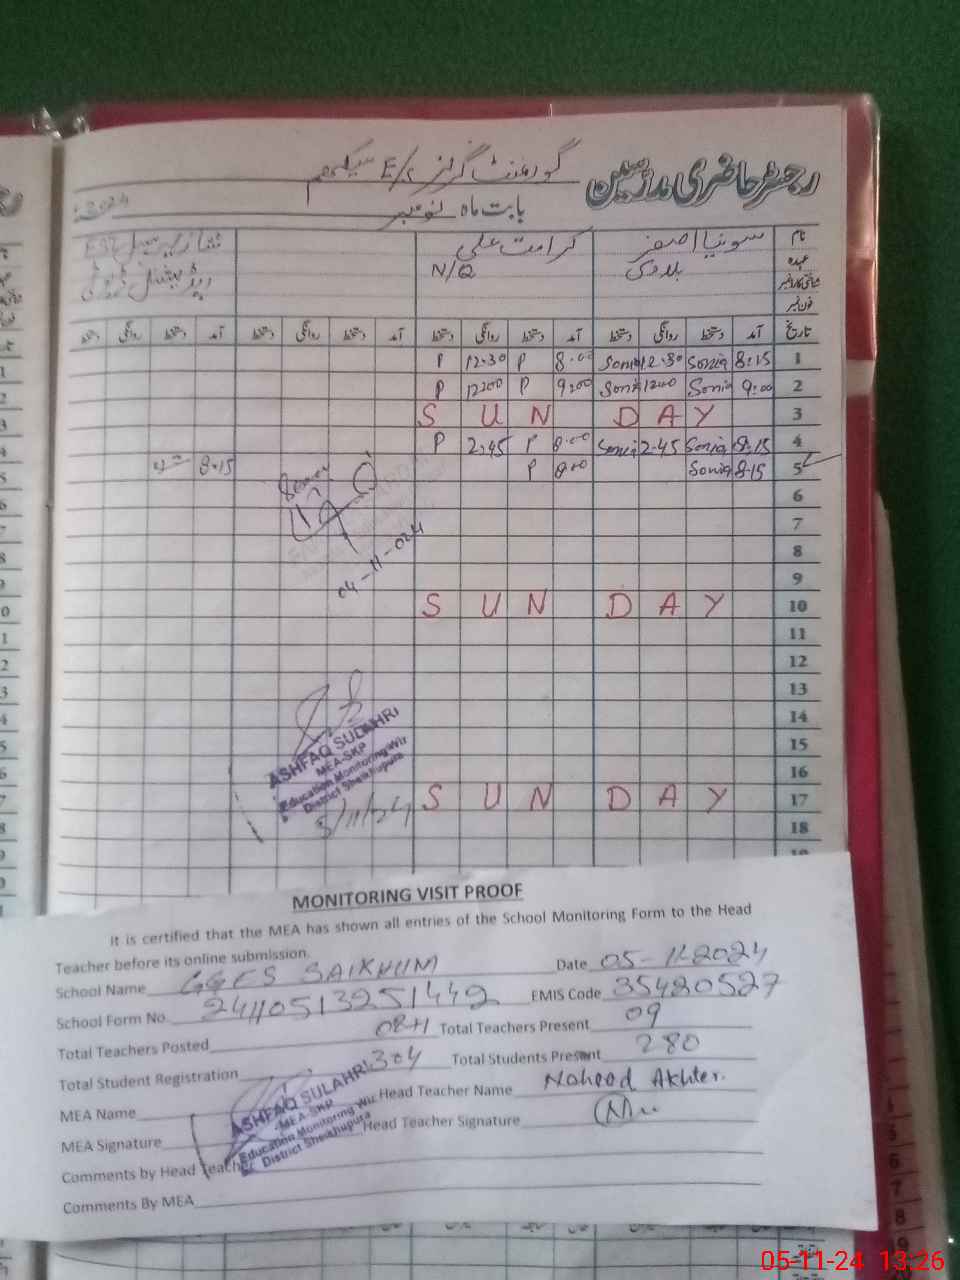 رجسٹر حاضری مدرسین گورنمنٹ گرلز E/S سیکھم
بابت ماہ نومبر 2024
نام سونیا اصغر کرامت علی
عہدہ N/Q
فون نمبر
تاریخ آمد دستخط روانگی دستخط آمد دستخط روانگی دستخط آمد دستخط روانگی دستخط آمد دستخط روانگی دستخط
1 8:15 Sonia 12:30 Sonia 8:00 P 12:30 P
2 9:00 Sonia 1200 Sonia 9:00 P 12:00 P
3 S U N D A Y
4 8:15 Sonia 2:45 Sonia 8:00 P 2:45 P
5 8:15 Sonia 8:00 P 8:15
6
7
8
9
04-11-024
10 S U N D A Y
11
12
13
14
15
16
17 S U N D A Y
18
ASHFAQ SULAHRI
MEA-SKP
Education Monitoring Wing
District Sheikhupura
5/11/24
MONITORING VISIT PROOF
It is certified that the MEA has shown all entries of the School Monitoring Form to the Head
Teacher before its online submission.
School Name GGES SAIKHUM Date 05-11-2024
School Form No. 24110513251442 EMIS Code 35420527
Total Teachers Posted 08+1 Total Teachers Present 09
Total Student Registration 304 Total Students Present 280
MEA Name Head Teacher Name Naheed Akhter.
MEA Signature Head Teacher Signature
ASHFAQ SULAHRI
MEA-SKP
Education Monitoring Wing
District Sheikhupura
Comments by Head Teacher
Comments By MEA
05-11-24 13:26